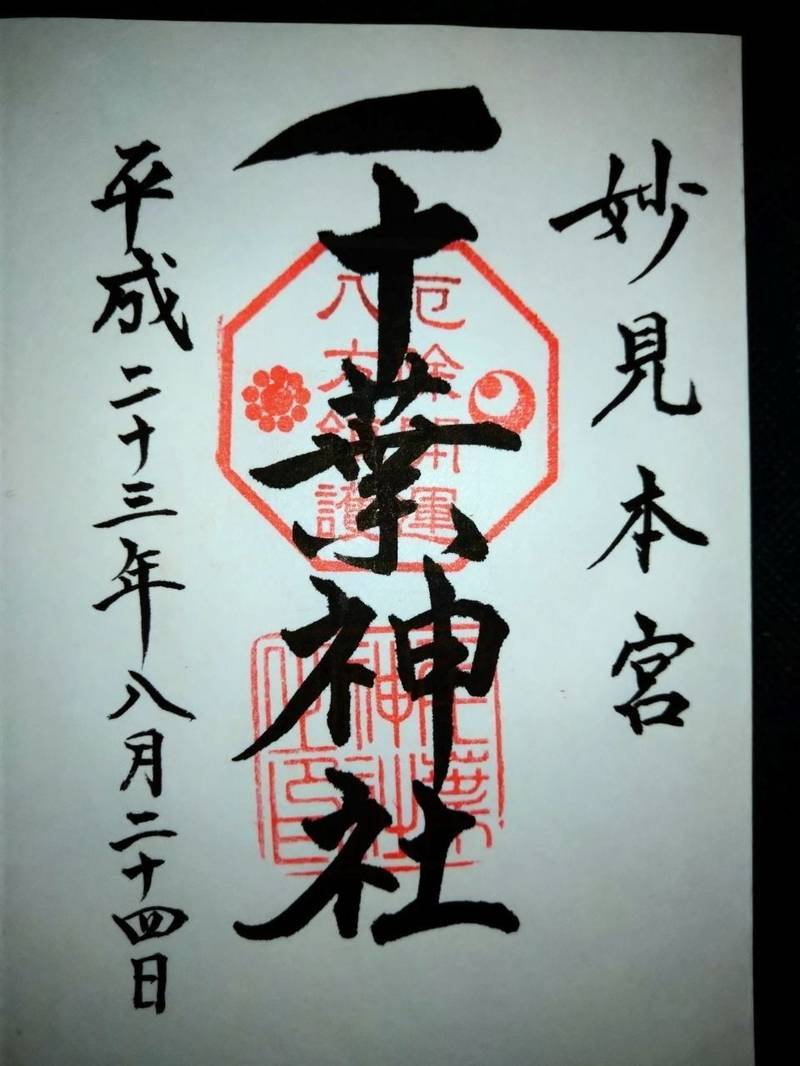 妙見本宮
千葉神社
厄除開運
八方鎮護
千葉
神社
之印
平成二十三年八月二十四日